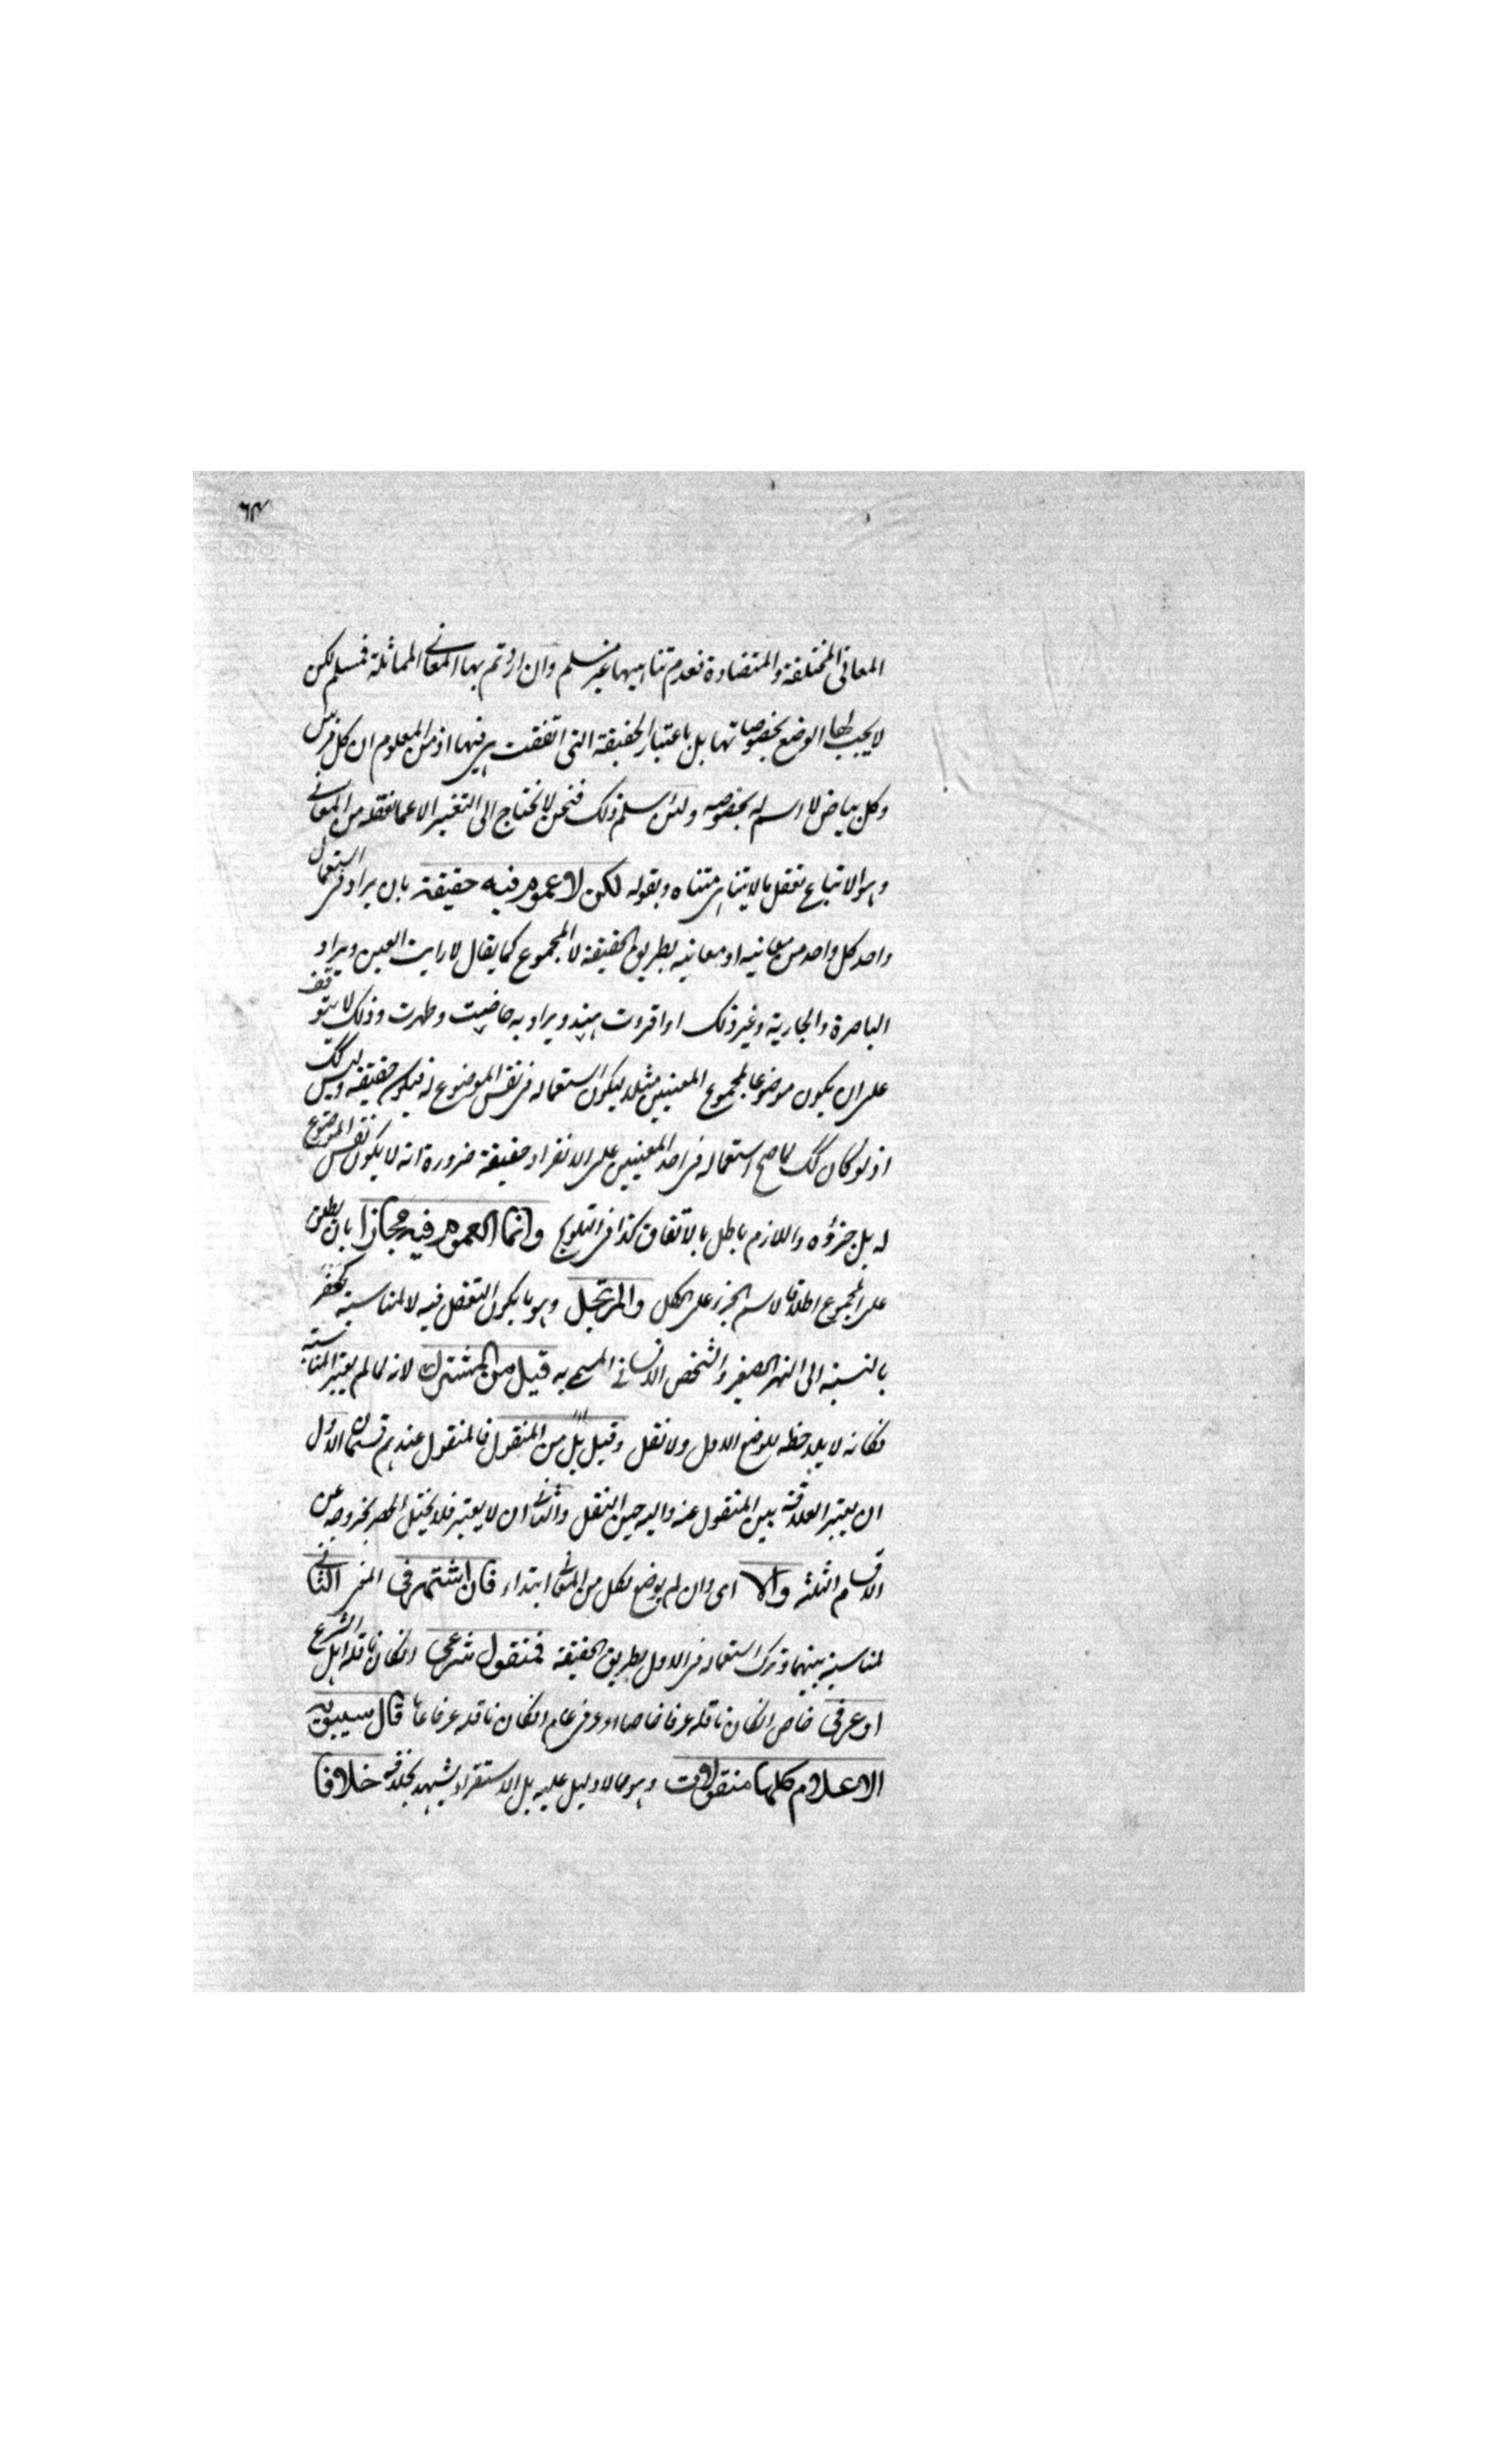 ٦٣
المعانى المختلفة والمتضادة فعدم تناهيها غير مسلم وان اردتم بها المعانى المماثلة فمسلم لكن
لا يجب لها الوضع بخصوصياتها بل باعتبار الحقيقة التى اتفقت هى فيها اذ من المعلوم ان كل فرس
وكل بياض لا اسم له بخصوصه ولئن سلم ذلك فنحن لا نحتاج الى التعبير الا عما نعقله من المعانى
وهو الاتباع تعقل ما لا يتناهى متناه وبقوله لكن لا عموم فيه حقيقة بان يراد فى استعمال
واحد كل واحد من معانيه او معانيه بطريق الحقيقة لا المجموع كما يقال لا رايت العين ويراد
الباصرة والجارية وغير ذلك او اقرءت هند ويراد به حاضت وطهرت وذلك لا يتوقف
على ان يكون موضوعا لمجموع المعنيين مثلا ليكون استعماله فى نفس الموضوع له فيكون حقيقة وليس كك
اذ لو كان كك لما صح استعماله فى احد المعنيين على الانفراد حقيقة ضرورة انه لا يكون نفس الموضوع
له بل جزؤه واللازم باطل بالاتفاق كذا فى التلويح وانما العموم فيه مجازا بان يطلق
على المجموع اطلاقا لاسم الجزء على الكل والمرتجل وهو ما يكون النقل فيه لا لمناسبة كجعفر
بالنسبة الى النهر الصغير والشخص الانسانى المسمى به قيل من المشترك لانه لما لم يعتبر المناسبة
فكانه لا يلاحظه للوضع الاول ولا نقل وقيل بل من المنقول فالمنقول عندهم قسمان الاول
ان يعتبر العلاقة بين المنقول عنه واليه حين النقل والثانى ان لا يعتبر فلا يختل الحصر بخروجه عن
الاقسام الثلثة والا اى وان لم يوضع لكل من المعانى ابتداء فان اشتهر فى المعنى الثانى
لمناسبة بينهما وترك استعماله فى الاول بطريق الحقيقة فمنقول شرعى انكان ناقله اهل الشرع
او عرفى خاص انكان ناقله عرفا خاصا او عرفى عام انكان ناقله عرفا عاما قال سيبويه
الاعلام كلها منقولات وهو مما لا دليل عليه بل الاستقراء يشهد بخلافه خلافا